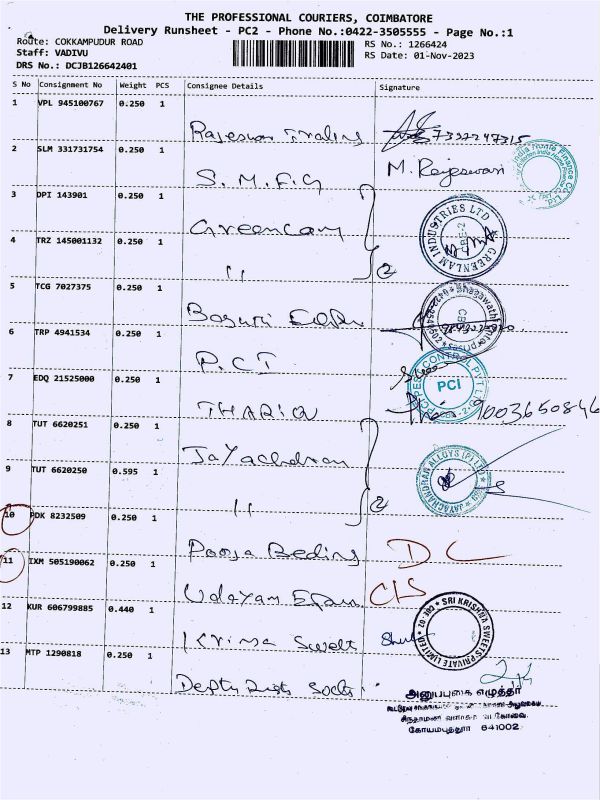 THE PROFESSIONAL COURIERS, COIMBATORE
Delivery Runsheet - PC2 - Phone No.:0422-3505555 - Page No.:1
Route: COKKAMPUDUR ROAD
Staff: VADIVU
DRS No.: DCJB126642401
RS No.: 1266424
RS Date: 01-Nov-2023
S No Consignment No Weight PCS Consignee Details Signature
1 VPL 945100767 0.250 1
Rajeswari Trading 7397247315
2 SLM 331731754 0.250 1
S.M.F.G M. Rajeswari
3 DPI 143901 0.250 1
Greenlam GREENLAM INDUSTRIES LTD CBE-2
4 TRZ 145001132 0.250 1
" 2
5 TCG 7027375 0.250 1
6 TRP 4941534 0.250 1
P.C.I
PCI PEST CONTROL PVT LTD
PCI
7 EDQ 21525000 0.250 1
THARIQ
8 TUT 6620251 0.250 1
Jayachdran
JAYACHANDRAN ALLOYS (P) LTD
9 TUT 6620250 0.595 1
" 2
10 PDK 8232509 0.250 1
Pooja Beding DC
11 IXM 505190062 0.250 1
Udayam CLS
12 KUR 606799885 0.440 1
Krisna Swelt
SRI KRISHNA SWEETS PRIVATE LIMITED CBE-02
13 MTP 1290818 0.250 1
அனுப்புகை எழுத்தர்
கோயமபுத்தூர் 641002